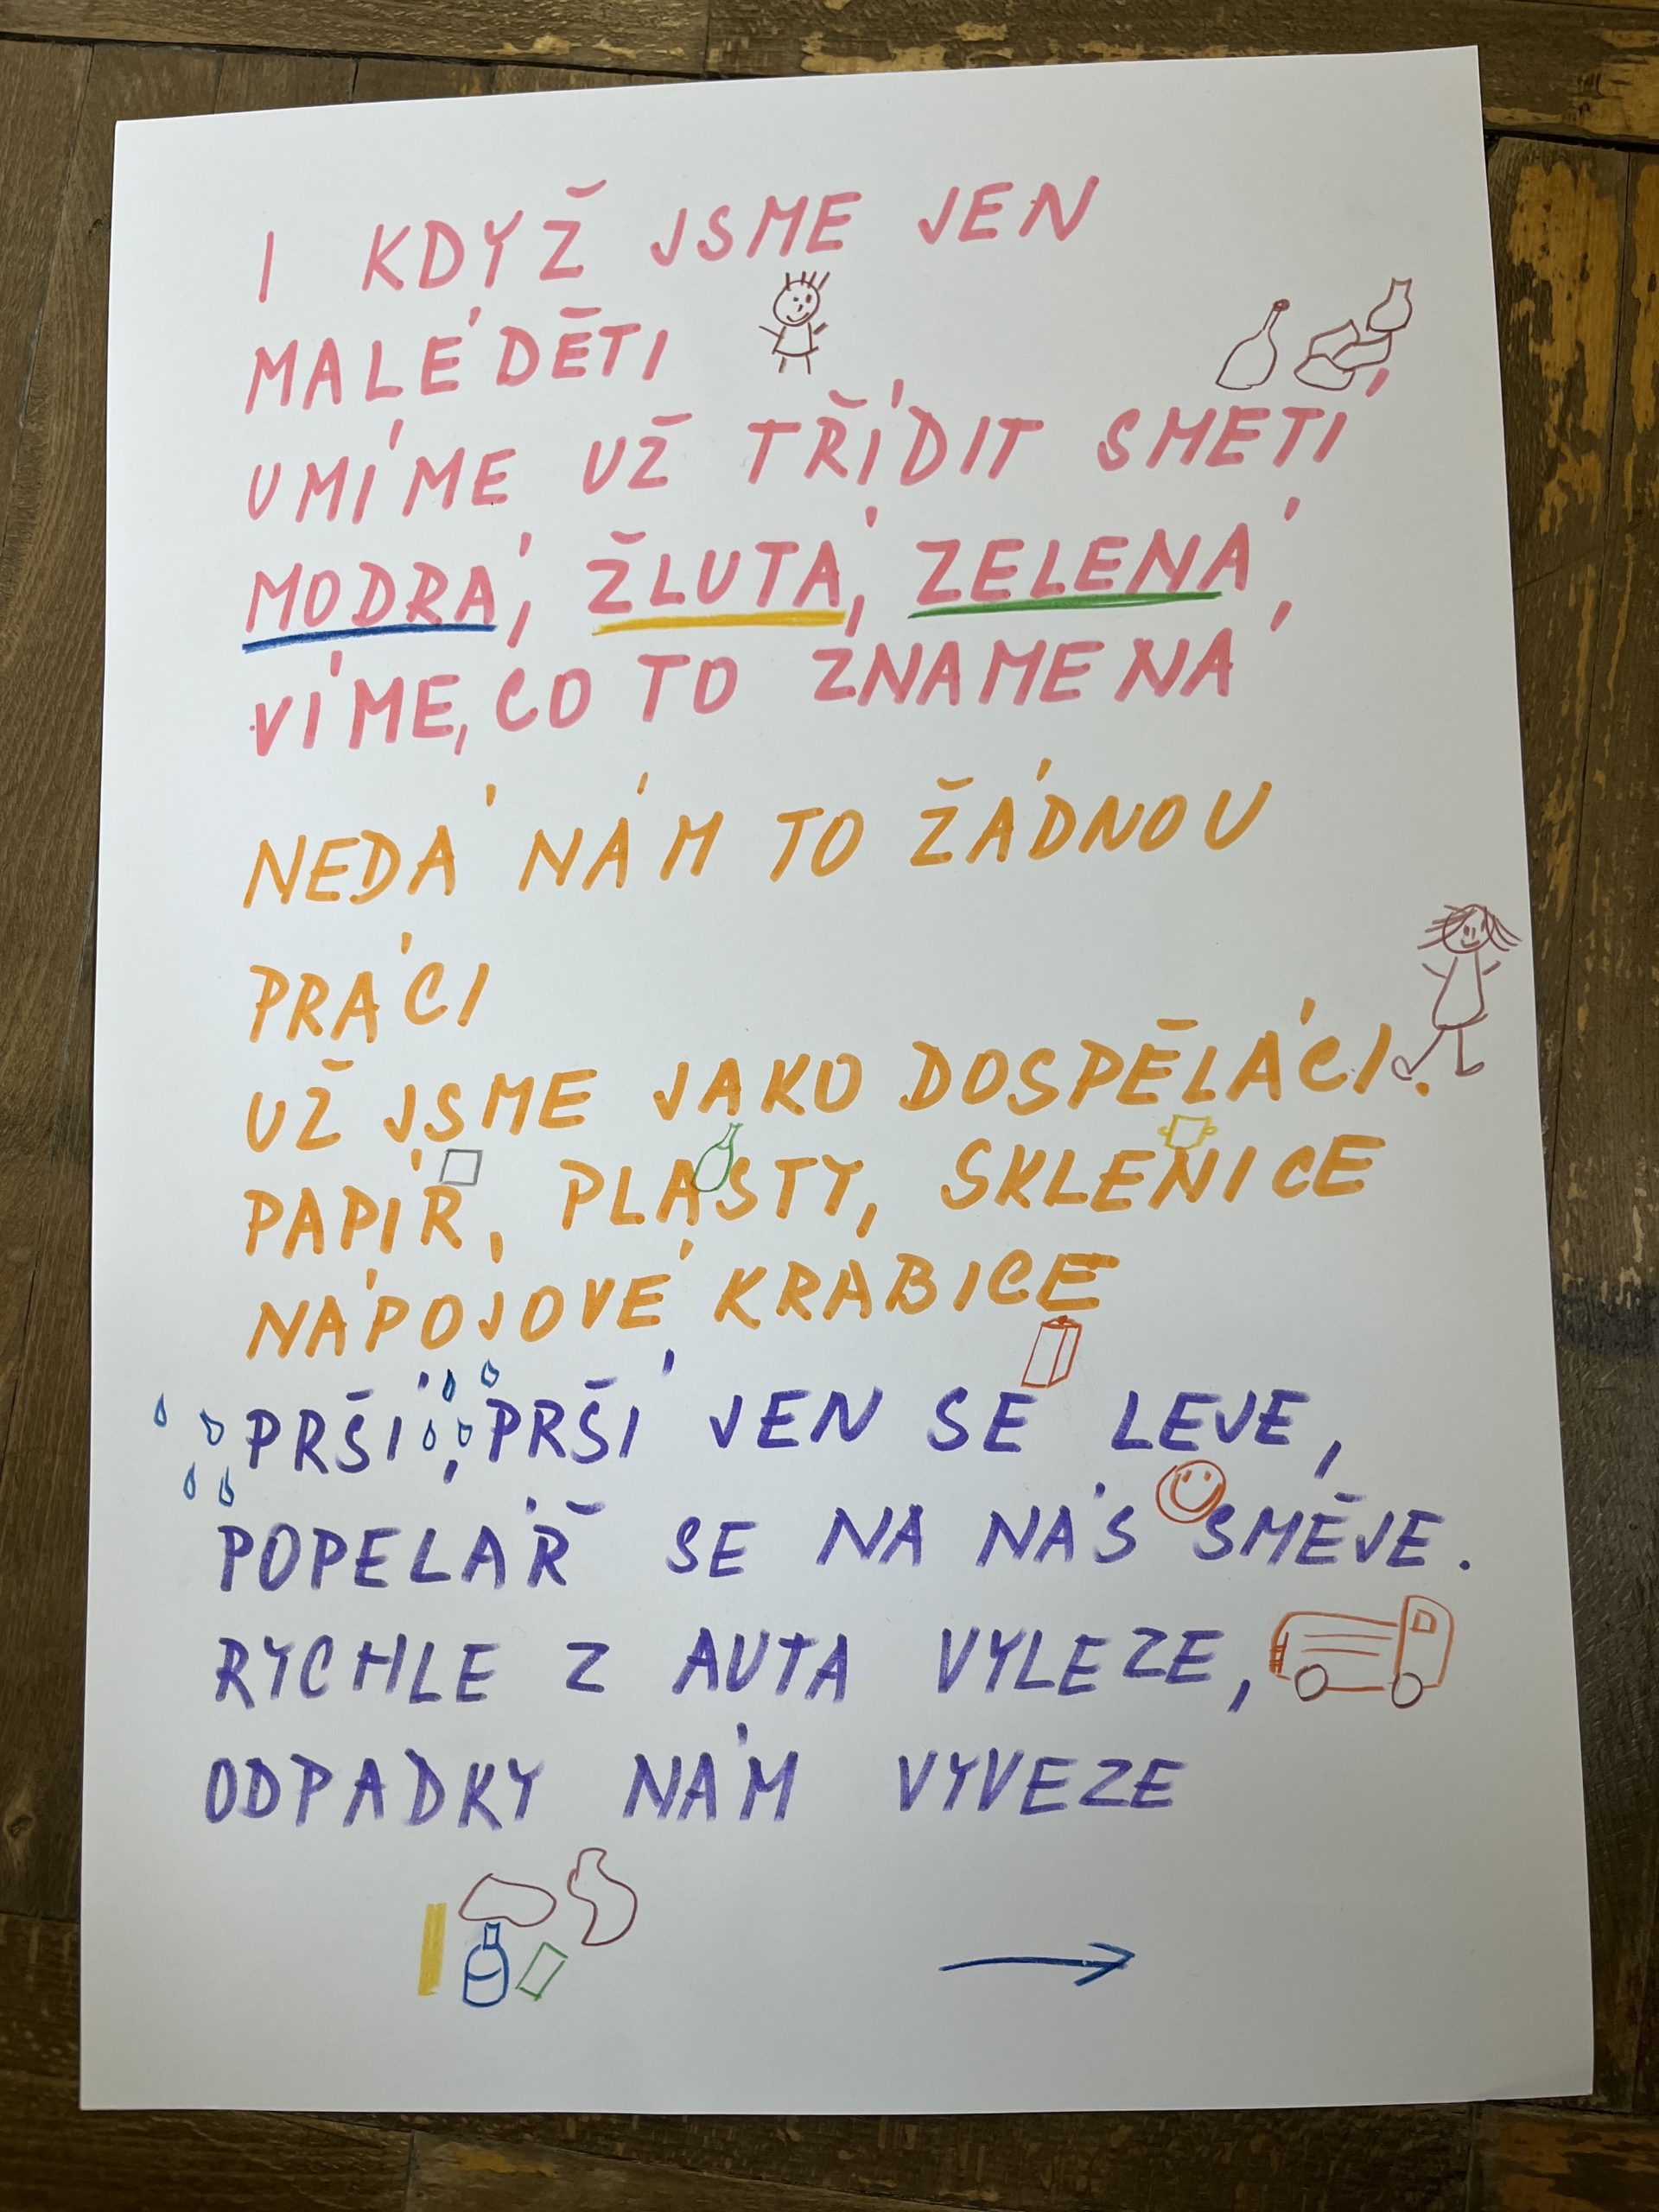 I KDYŽ JSME JEN
MALÉ DĚTI
UMÍME UŽ TŘÍDIT SMETÍ,
MODRÁ, ŽLUTÁ, ZELENÁ,
VÍME, CO TO ZNAMENÁ
NEDÁ NÁM TO ŽÁDNOU
PRÁCI
UŽ JSME JAKO DOSPĚLÁCI.
PAPÍR, PLASTY, SKLENICE
NÁPOJOVÉ KRABICE
PRŠÍ, PRŠÍ JEN SE LEJE,
POPELÁŘ SE NA NÁS SMĚJE.
RYCHLE Z AUTA VYLEZE,
ODPADKY NÁM VYVEZE